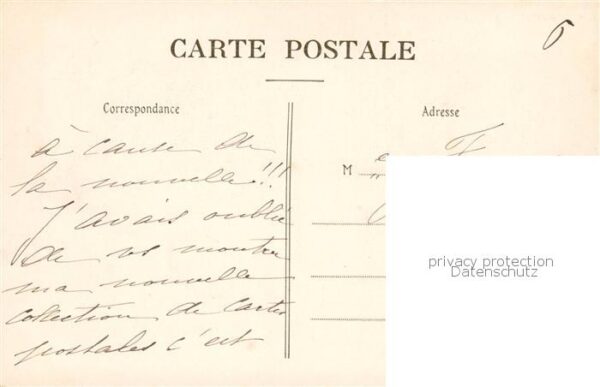 6
CARTE POSTALE
Correspondance
Adresse
à cause de
la nouvelle!!!
J'avais oublié
de vs montrer
ma nouvelle
collection de cartes
postales c'est
M
privacy protection
Datenschutz